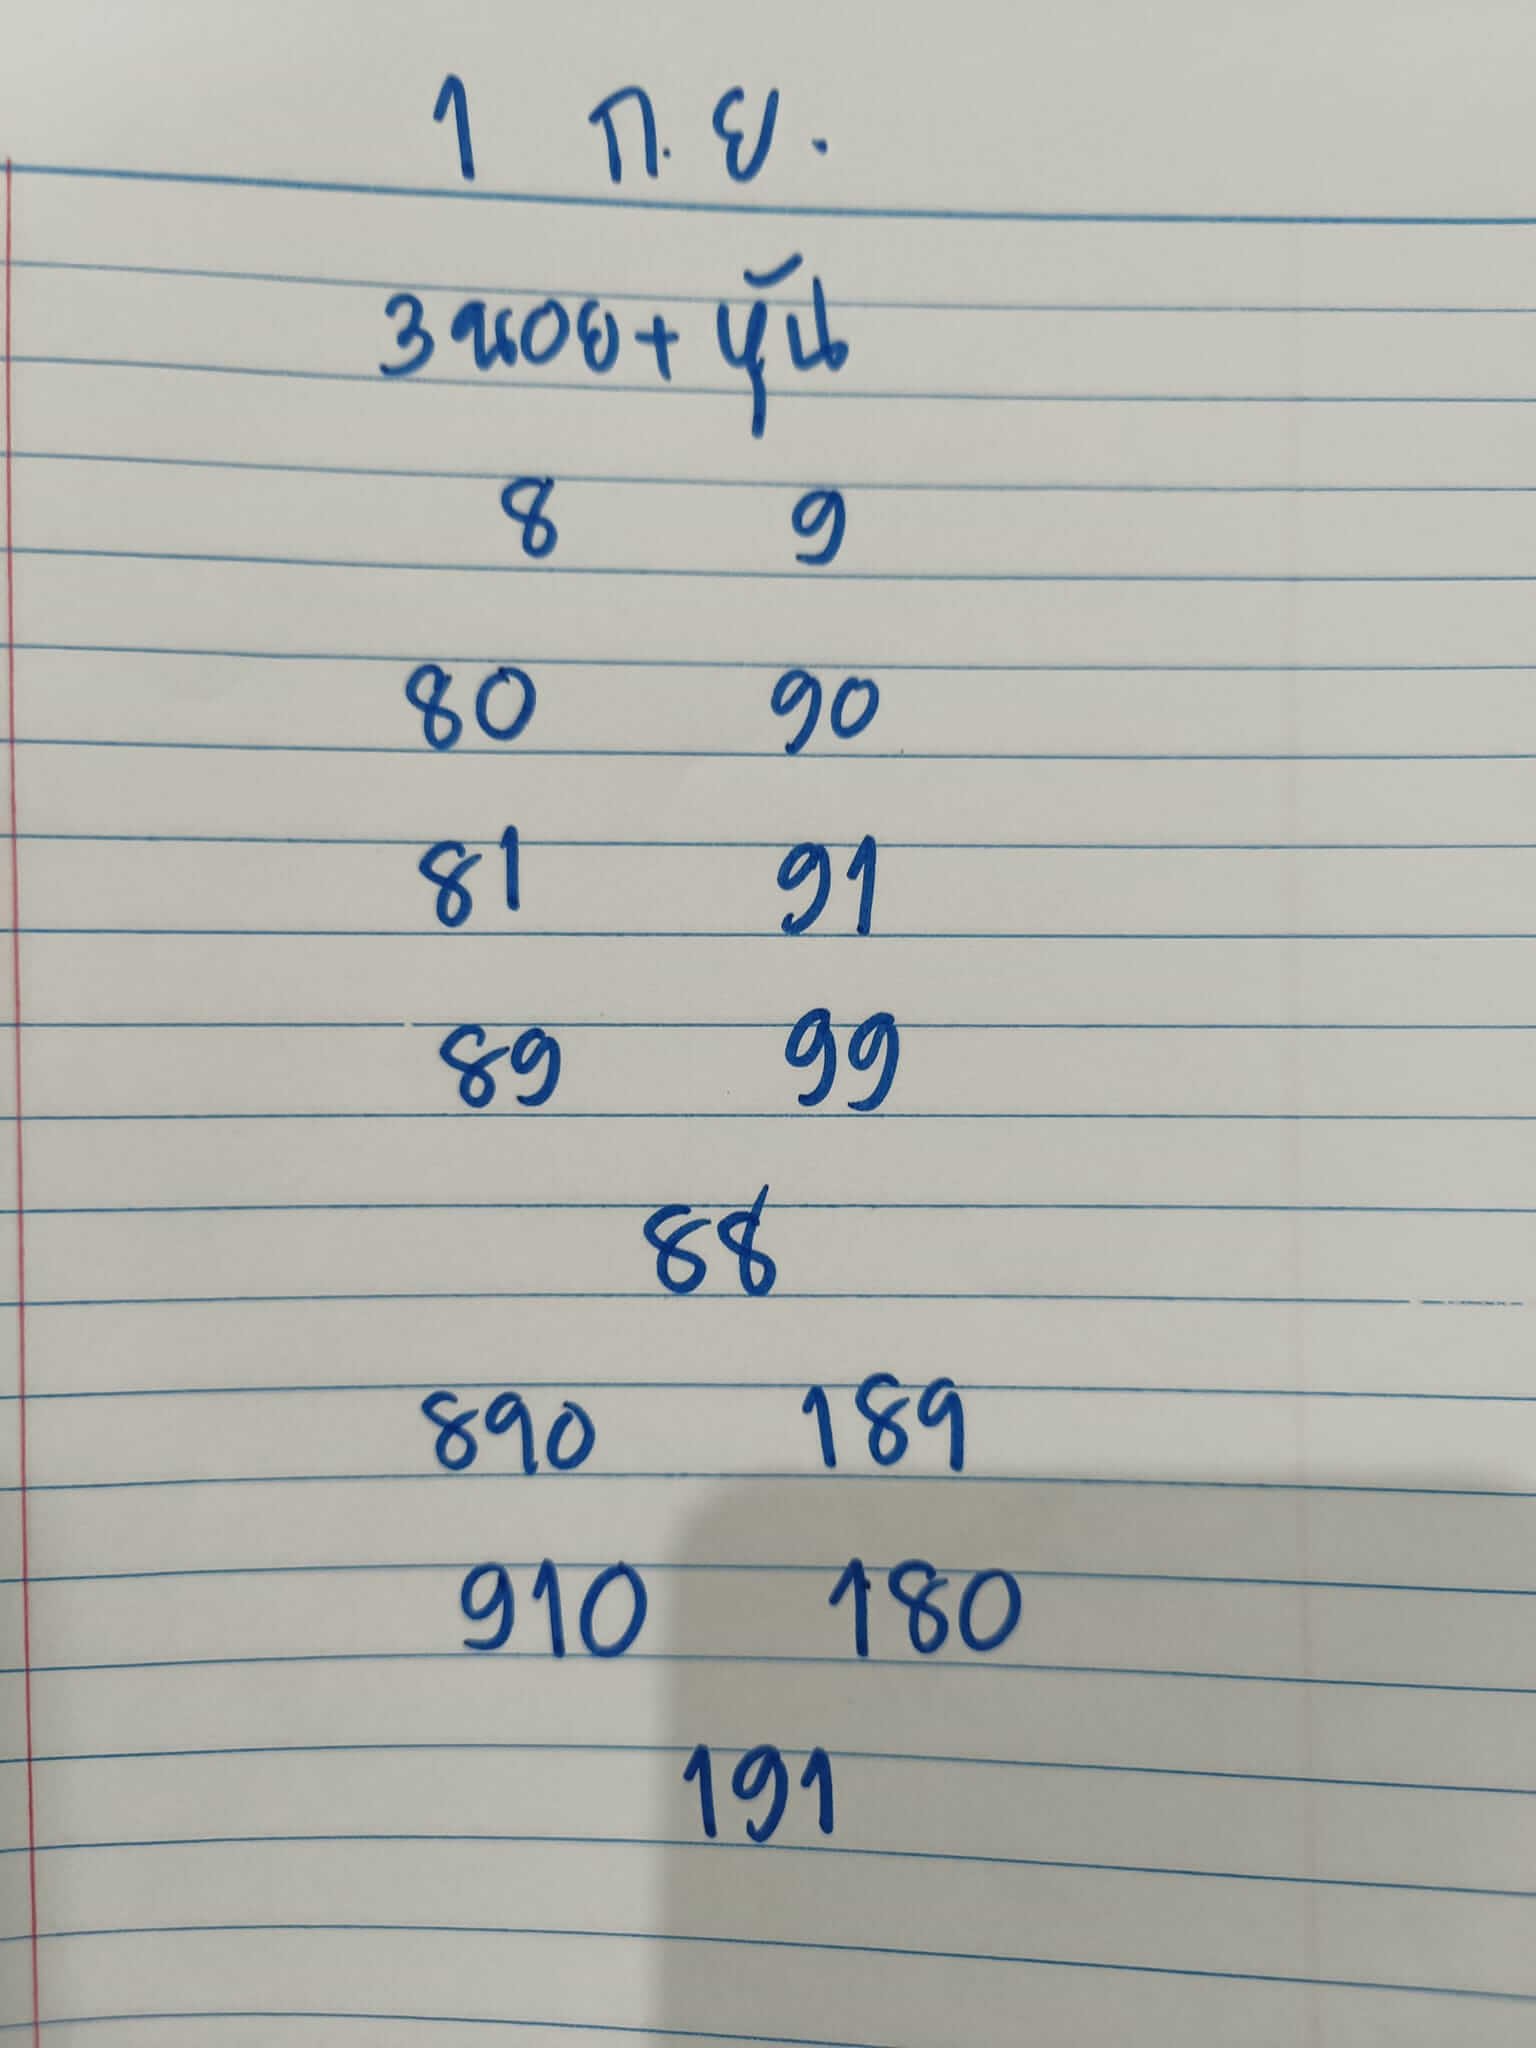 1 ก.ย.
3 นอย + หุ้น
8 9
80 90
81 91
89 99
88
890 189
910 180
191